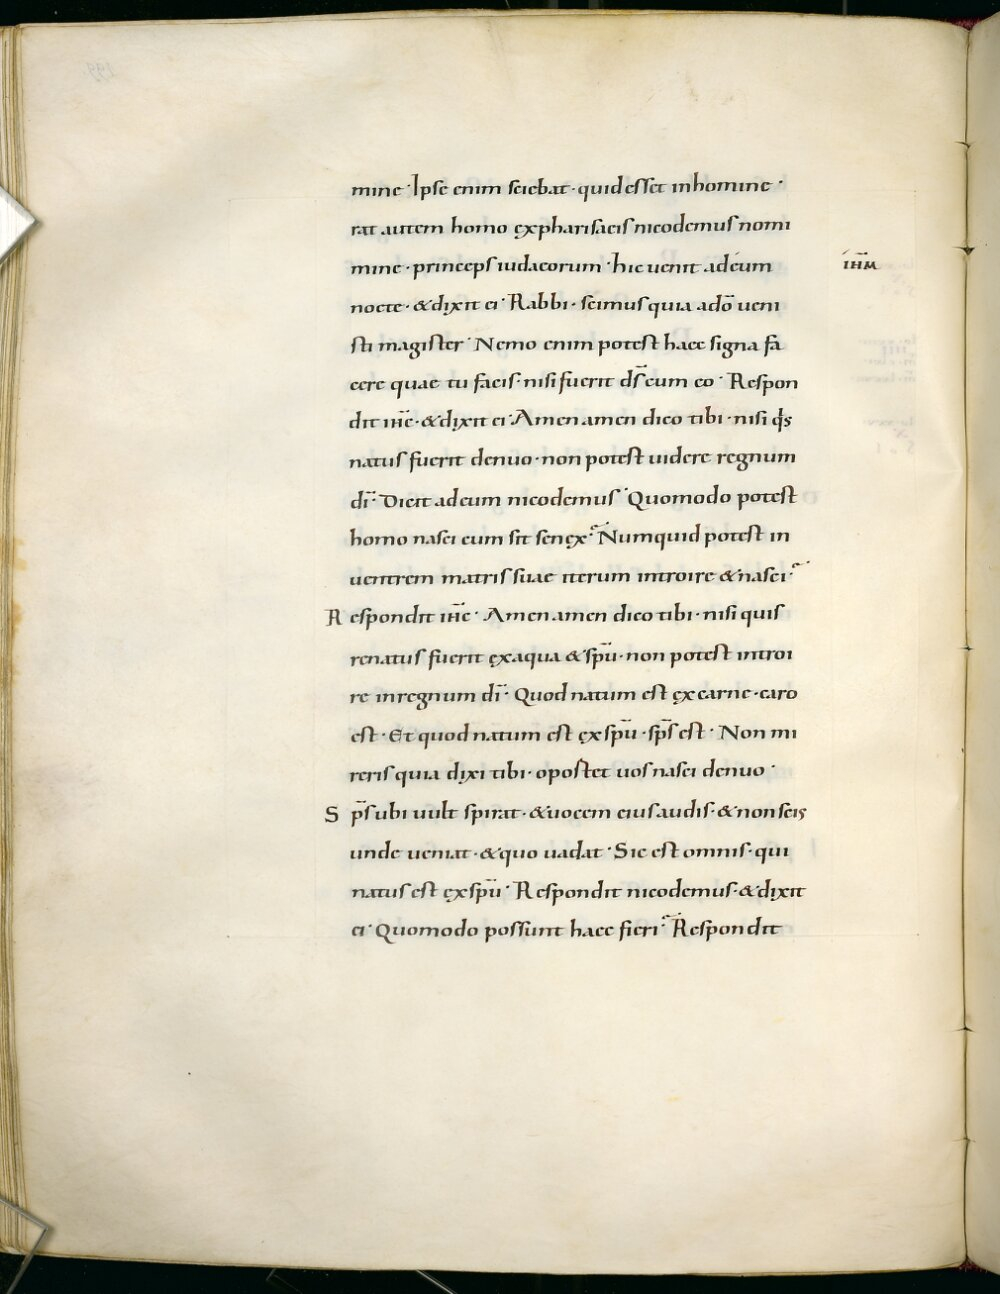 mine · Ipse enim sciebat · quid esset in homine ·
rat autem homo ex pharisaeis nicodemus nomi
mine · princeps iudaeorum · hic uenit ad eum
ihm
nocte · & dixit ei · Rabbi · scimus quia a dō ueni
sti magister · Nemo enim potest haec signa fa
cere quae tu facis · nisi fuerit ds̄ cum eo · Respon
dit ihc̄ · & dixit ei · Amen amen dico tibi · nisi q̇s
natus fuerit denuo · non potest uidere regnum
dī · Dicit ad eum nicodemus · Quomodo potest
homo nasci cum sit senex · Numquid potest in
uentrem matris suae iterum introire & nasci ·
Respondit ihc̄ · Amen amen dico tibi · nisi quis
renatus fuerit ex aqua & spū · non potest introi
re in regnum dī · Quod natum est ex carne · caro
est · Et quod natum est ex spū · sps̄ est · Non mi
reris quia dixi tibi · opostet uos nasci denuo ·
Sps̄ ubi uult spirat · & uocem eius audis · & non scis
unde ueniat · & quo uadat · Sic est omnis · qui
natus est ex spū · Respondit nicodemus · & dixit
ei · Quomodo possunt haec fieri · Respondit